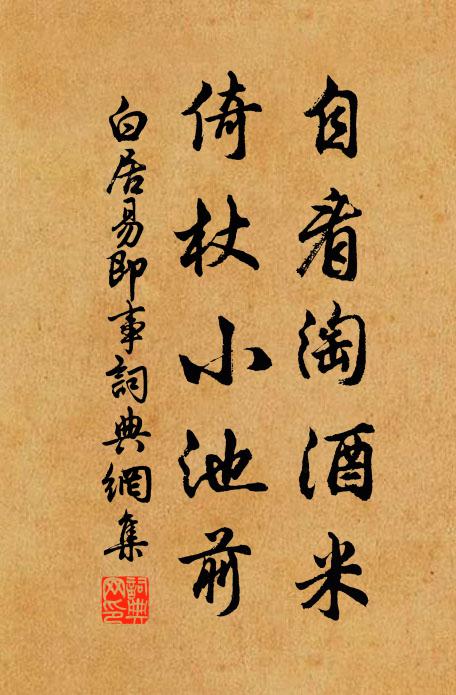 自看淘酒米
倚杖小池前
白居易即事詞典網集
詞典网印